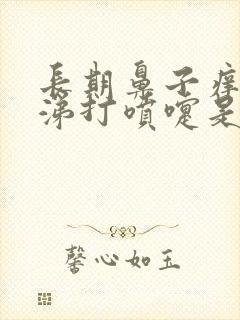 長期鼻子癢
涕打噴嚏是
馨心如玉